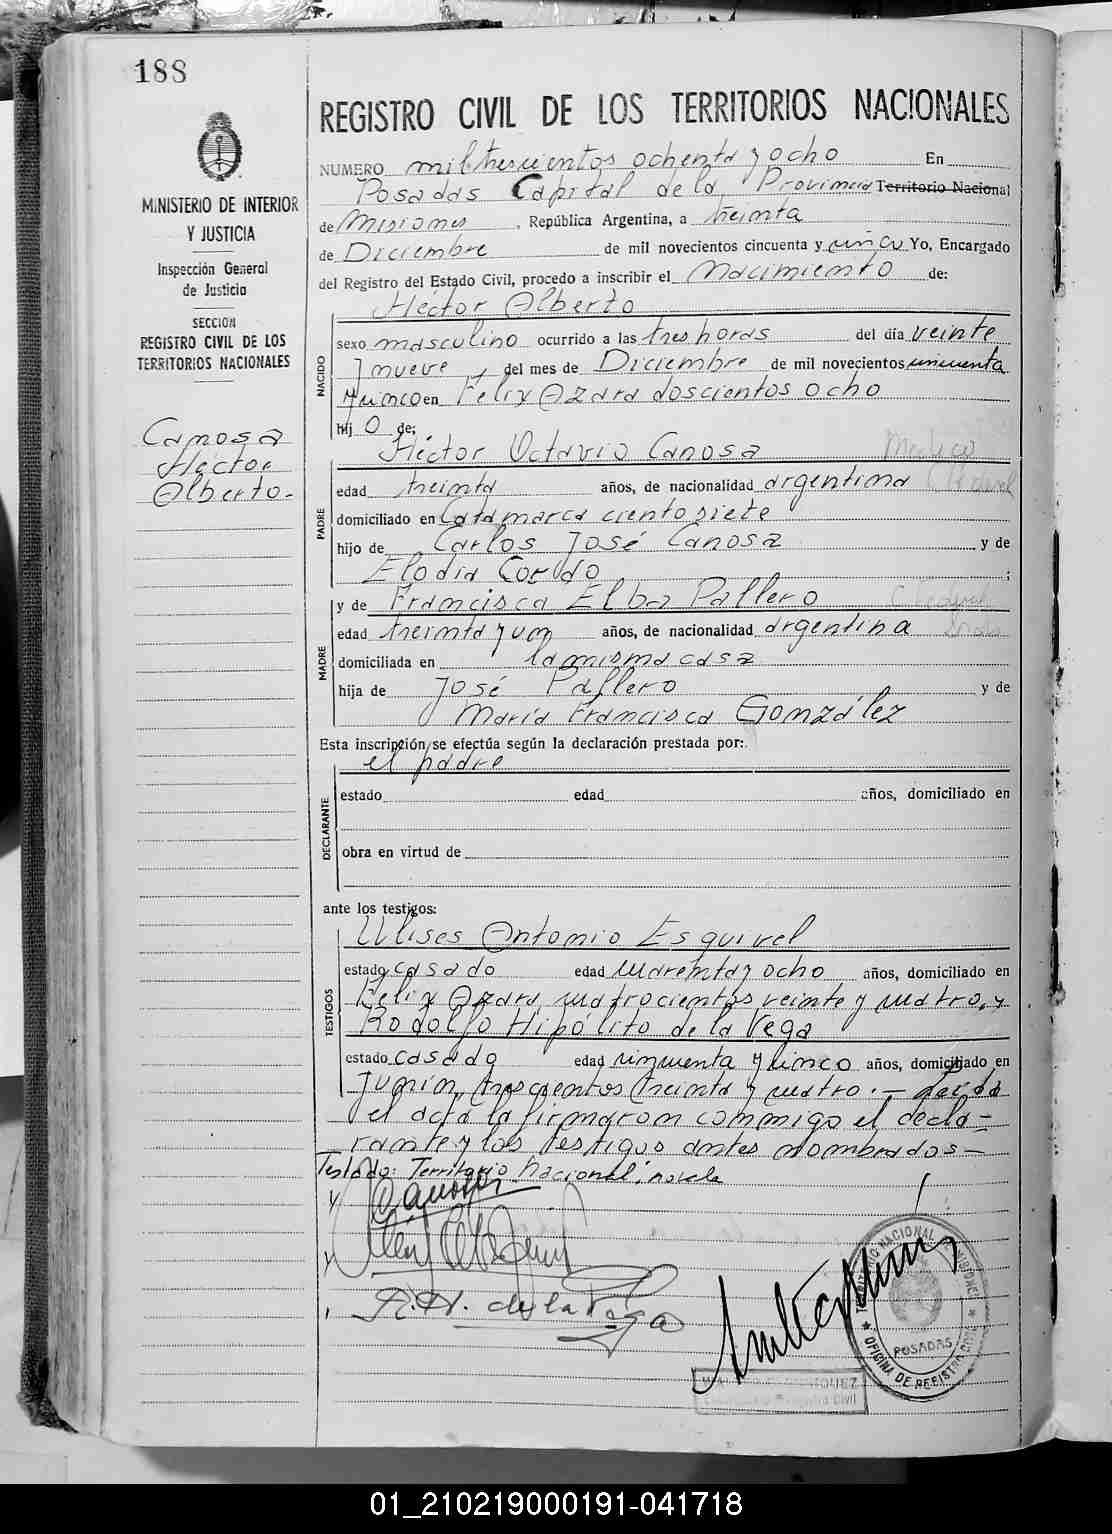 188
MINISTERIO DE INTERIOR
Y JUSTICIA
Inspección General
de Justicia
SECCION
REGISTRO CIVIL DE LOS
TERRITORIOS NACIONALES
Canosa
Héctor
Alberto.-
REGISTRO CIVIL DE LOS TERRITORIOS NACIONALES
NUMERO miltrescientos ochenta y ocho En
Posadas Capital de la Provincia Territorio Nacional
de Misiones, República Argentina, a treinta
de Diciembre de mil novecientos cincuenta y cinco Yo, Encargado
del Registro del Estado Civil, procedo a inscribir el Nacimiento de:
Héctor Alberto
NACIDO
sexo masculino ocurrido a las tres horas del día veinte
y nueve, del mes de Diciembre de mil novecientos cincuenta
y cinco en Félix Azara doscientos ocho
hij o de:
Héctor Octavio Canosa
PADRE
edad treinta años, de nacionalidad argentina
domiciliado en Catamarca ciento siete
hijo de Carlos José Canosa y de
Elodia Cordo ;
y de Francisca Elba Pallero
MADRE
edad treinta y un años, de nacionalidad argentina
domiciliada en la misma casa
hija de José Pallero y de
María Francisca González
Esta inscripción se efectúa según la declaración prestada por:
el padre
DECLARANTE
estado edad años, domiciliado en
obra en virtud de
ante los testigos:
Ulises Antonio Esquivel
TESTIGOS
estado casado edad cuarenta y ocho años, domiciliado en
Félix Azara cuatrocientos veinte y cuatro, y
Rodolfo Hipólito de la Vega
estado casado edad cincuenta y cinco años, domiciliado en
Junín, trescientos treinta y cuatro.- Leída
el acta la firmaron conmigo el decla-
rante y los testigos antes nombrados-
Testado: Territorio nacional; novecie
Canosa
R. H. de la Vega
TERRITORIO NACIONAL DE MISIONES
POSADAS
OFICINA DE REGISTRO CIVIL
01_210219000191-041718